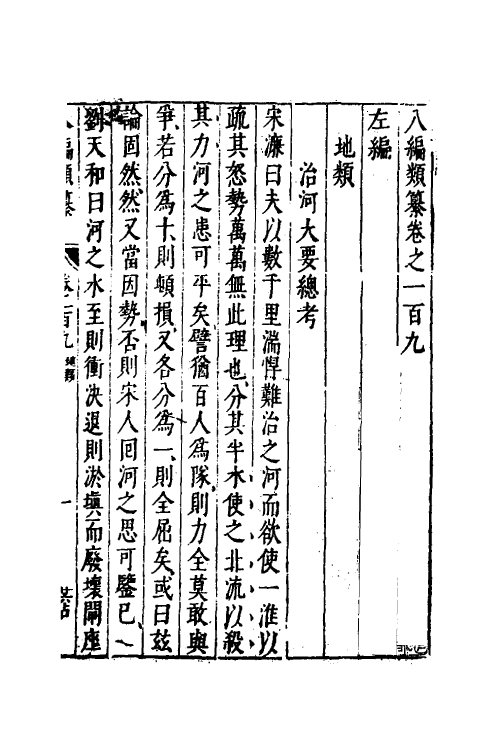 八編類纂卷之一百九
左編
地類
治河大要總考
宋濂曰夫以數千里湍悍難治之河而欲使一淮以
疏其怒勢萬萬無此理也分其半水使之北流以殺
其力河之患可平矣譬猶百人爲隊則力全莫敢與
爭若分爲十則頓損又各分爲一則全屈矣或曰玆
論固然然又當因勢否則宋人囘河之思可鑒已
劉天和曰河之水至則衝決退則淤塡而廢壞閘座
八編類纂 卷一百九 地類 一